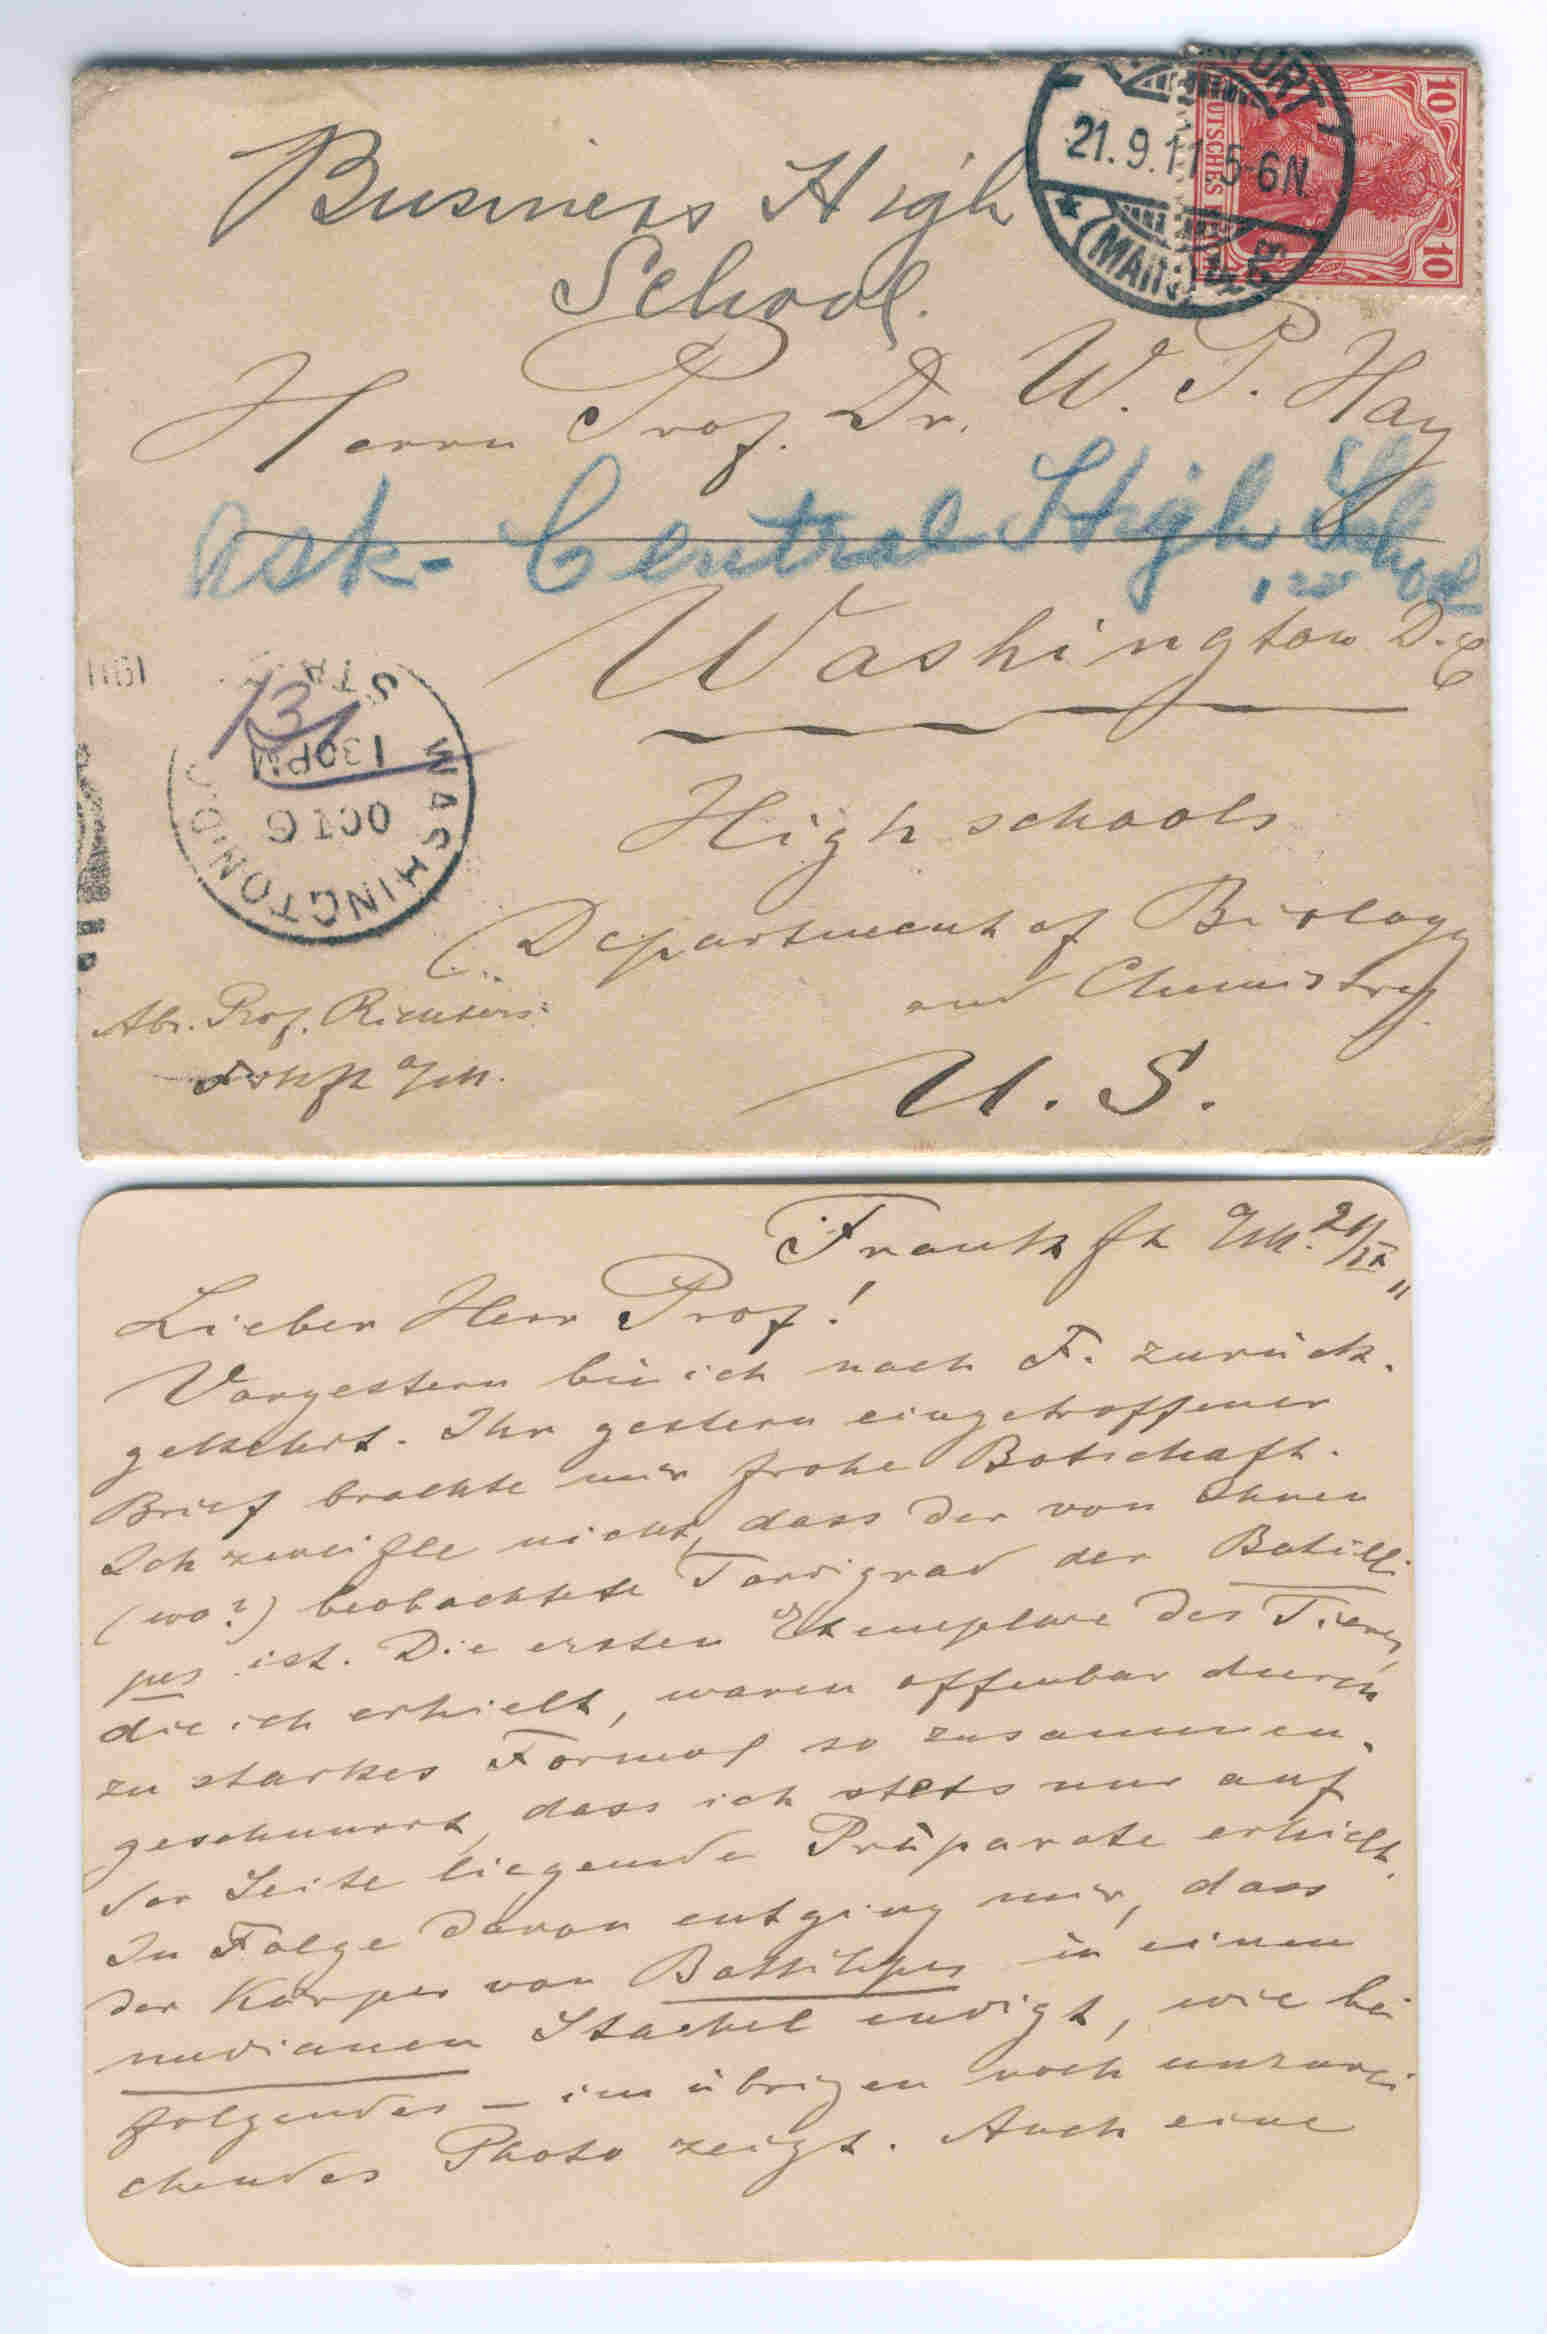 Business High
School.
FURT
21.9.11 5-6N.
(MAIN)
DEUTSCHES
10
10
Herrn Prof. Dr. W. P. Hay
ask - Central High School
Washington D.C
High schools
Department of Biology
and Chemistry.
U. S.
1911
WASHINGTON, D.C.
OCT 6
130PM
STA
Abs. Prof. Richters:
Frkft a/M.
Frankft a/M. 21/IX 11
Lieber Herr Prof!
Vorgestern bin ich nach F. zurück-
gekehrt. Ihr gestern eingetroffener
Brief brachte mir frohe Botschaft.
Ich zweifle nicht, dass der von Ihnen
(wo?) beobachtete Tardigrad der Batilli
pes ist. Die ersten Exemplare des Tieres,
die ich erhielt, waren offenbar durch
zu starkes Formol so zusammen-
geschnurrt, dass ich stets nur auf
der Seite liegende Präparate erhielt.
In Folge davon entging mir, dass
der Körper von Battilipes in einen
medianen Stachel endigt, wie bei
folgendes – im übrigen noch unzurei
chendes Photo zeigt. Auch eine